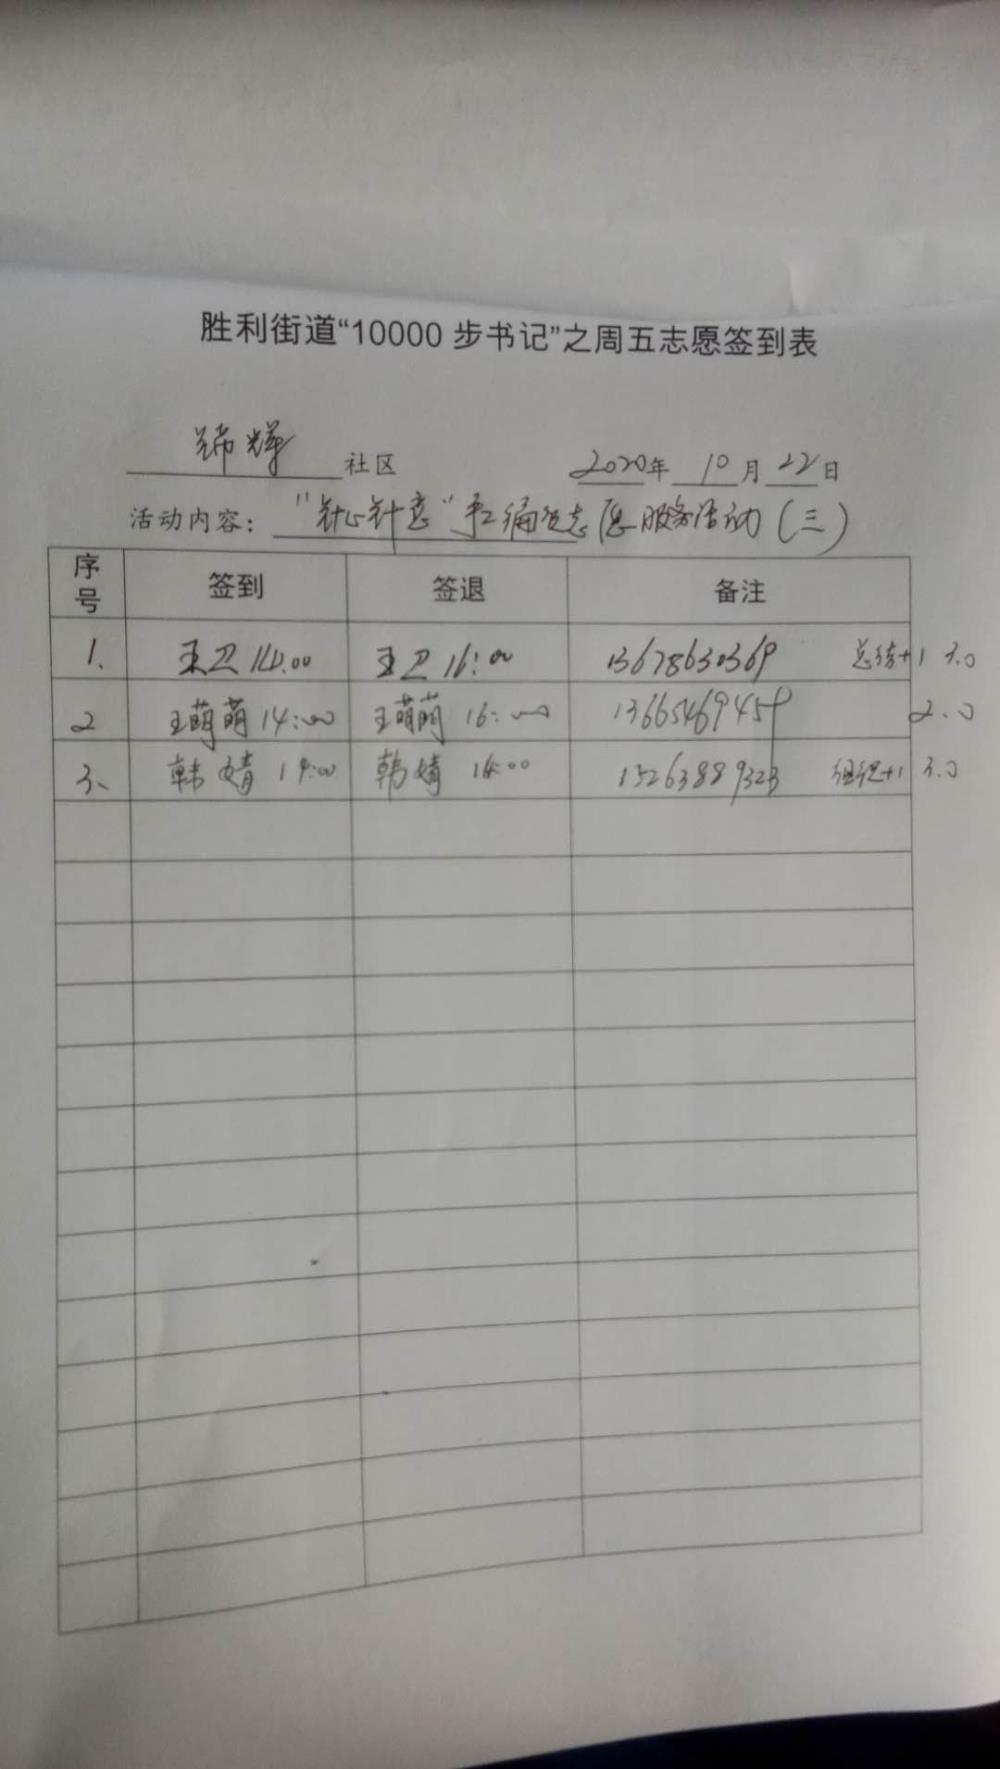 胜利街道“10000 步书记”之周五志愿签到表
锦辉 社区 2020年 10 月 22 日
活动内容： “针心针意”手工编织志愿服务活动（三）
序号 签到 签退 备注
1、 王卫 14:00 王卫 16:00 13678630369 总结+1 3.0
2 王萌萌 14:00 王萌萌 16:00 13665469459 2.0
3、 韩婧 14:00 韩婧 16:00 15263889323 组织+1 3.0